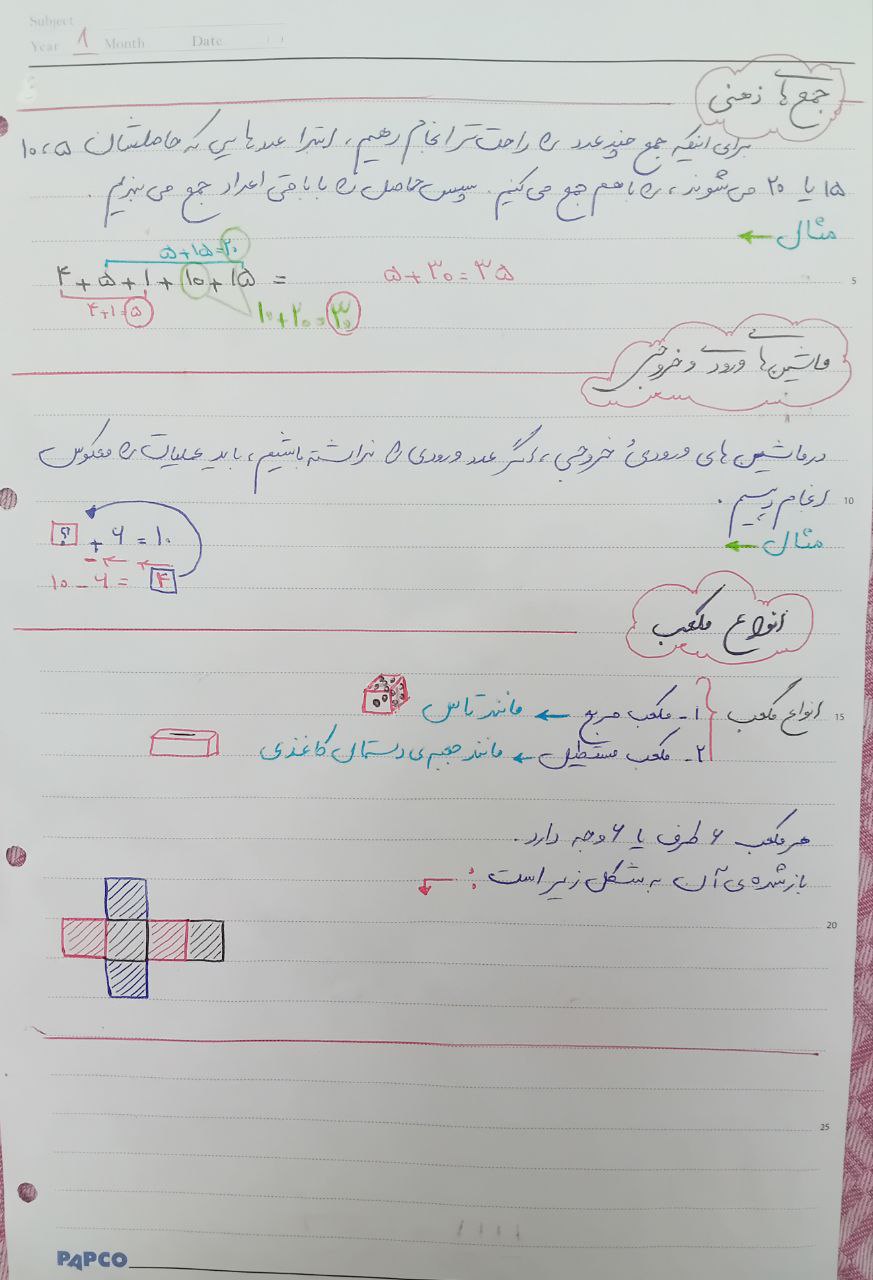 Subject
Year ۱ Month Date
جمع های ذهنی
برای اینکه جمع چند عدد را راحت تر انجام دهیم، ابتدا عدد هایی که حاصلشان ۵، ۱۰،
۱۵ یا ۲۰ می شوند، را با هم جمع می کنیم. سپس حاصل را با باقی اعداد جمع می زنیم.
مثال ←
۵+۱۵=۲۰
۴+۵+۱+۱۰+۱۵= ۵+۳۰=۳۵
۴+۱=۵
۱۰+۲۰=۳۰
5
ماشین های ورودی و خروجی
در ماشین های ورودی و خروجی، اگر عدد ورودی را نداشته باشیم، باید عملیات را معکوس
10
انجام دهیم.
؟ + ۶ = ۱۰
مثال ←
۱۰ - ۶ = ۴
انواع مکعب
انواع مکعب
15
۱- مکعب مربع ← مانند تاس
۲- مکعب مستطیل ← مانند جعبه ی دستمال کاغذی
هر مکعب ۶ طرف یا ۶ وجه دارد.
باز شده ی آن به شکل زیر است:
20
25
PAPCO